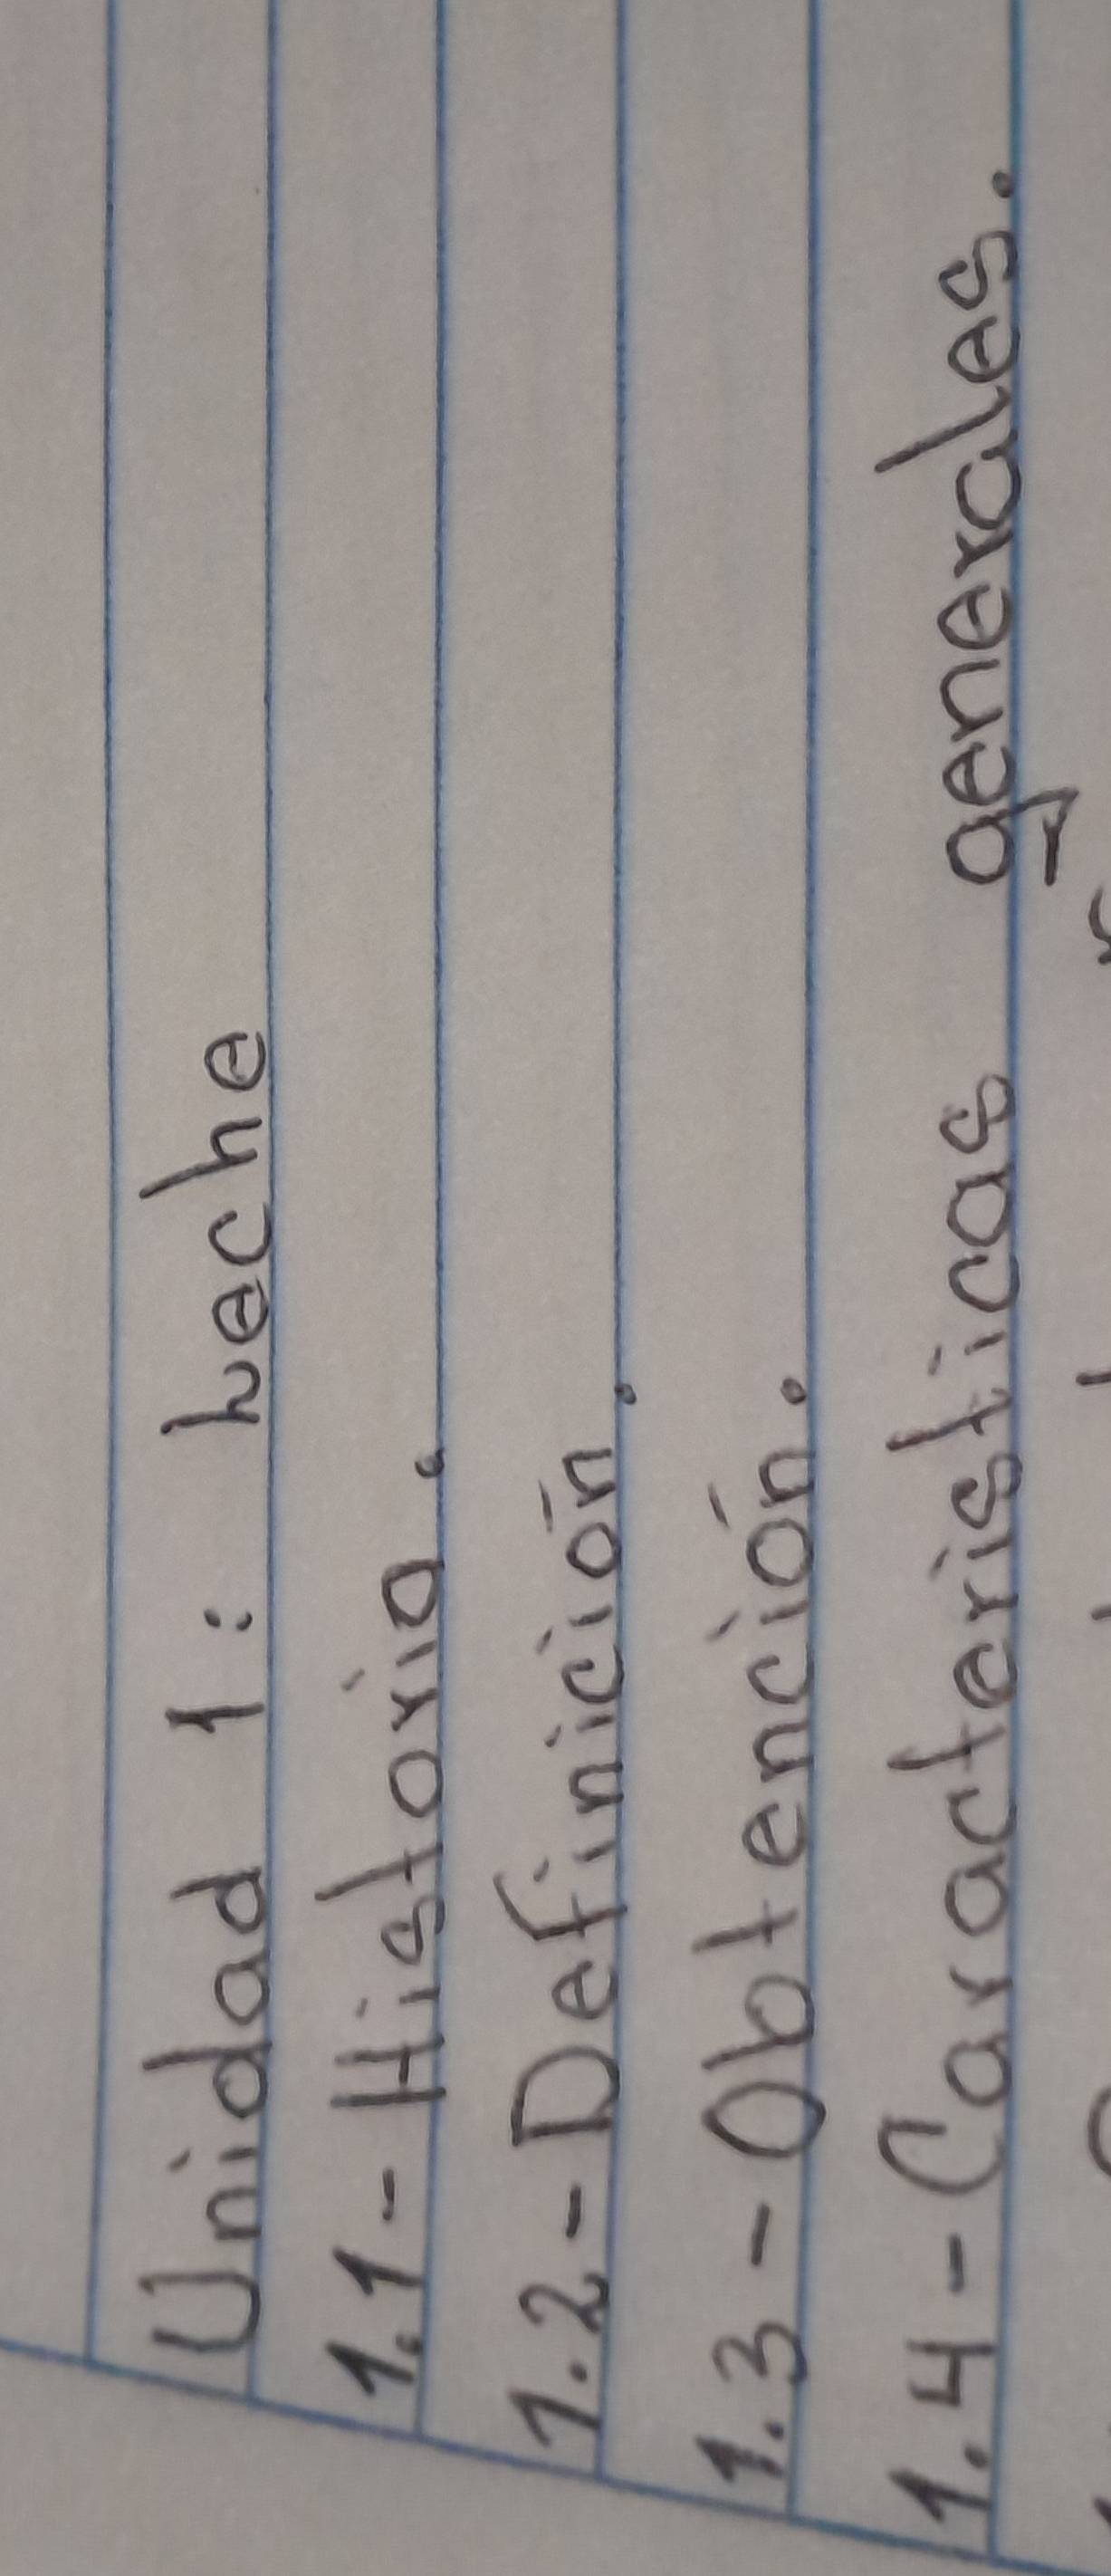 Unidad 1: Leche
1.1- Historia.
1.2- Definición.
1.3- Obtención.
1.4- Caracteristicas generales.